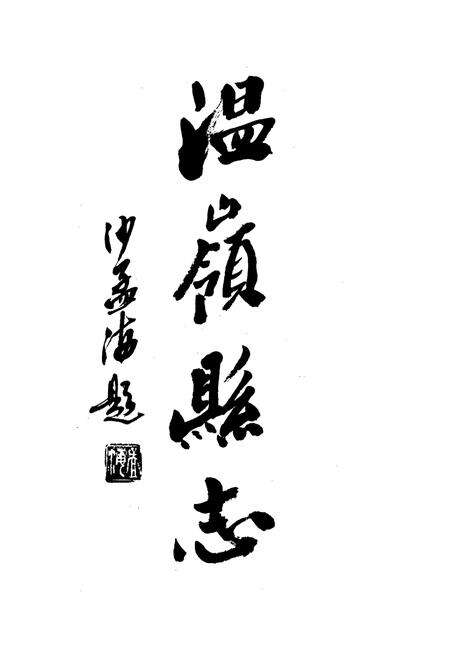 温嶺縣志
沙孟海題